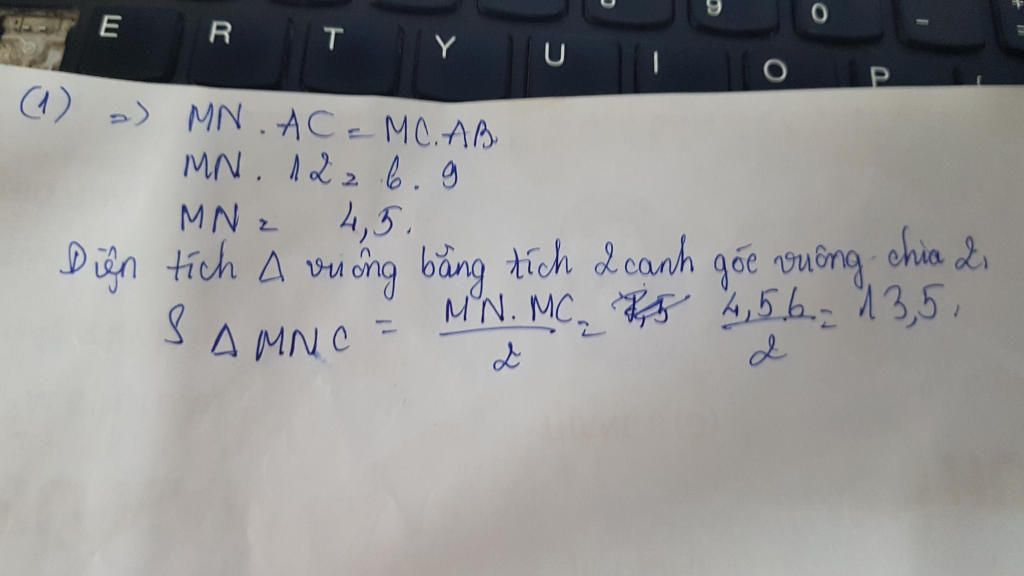 E R T Y U I O P
9 0 -
(1) => MN . AC = MC.AB.
MN . 12 = 6 . 9
MN = 4,5.
Diện tích Δ vuông bằng tích 2 canh góc vuông chia 2,
S Δ MNC = MN.MC / 2 = 4,5.6 / 2 = 13,5.